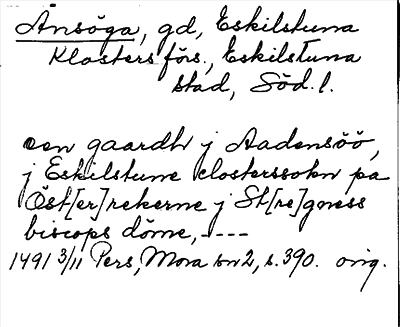 Ånsöga, gd, Eskilstuna
Klosters förs., Eskilstuna
stad, Söd. l.
een gaardh j Aadensöö,
j Eskilstune closterssokn pa
Öst[er]rekerne j St[re]gness
biscops döme, ----
1491 3/11 Pers, Mora bn 2, s. 390. orig.